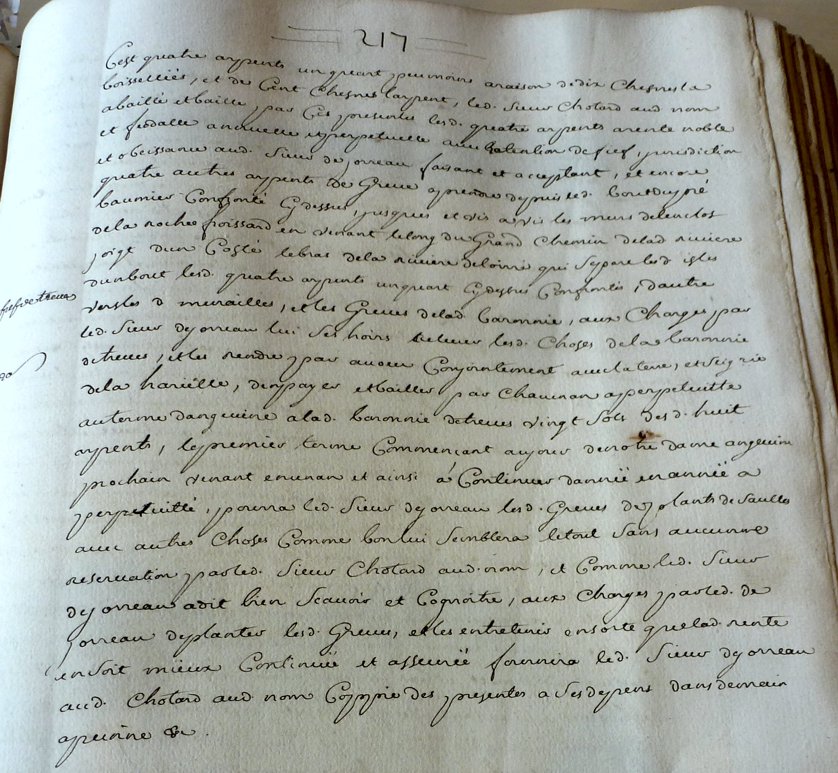 217
C'est quatre arpents un quart peu moins a raison de dix Chesnes la
boissellées, et de Cent Chesnes larpent, led. Sieur Chotard aud nom
a baillé et baille par Ces presentes lesd. quatre arpents a rente noble
et feodalle annuelle et perpetuelle avec Retention de fief, jurisdiction
et obeissance aud. Sieur de jorreau faisant et acceptant, et encore
quatre autres arpents de Greve a prendre depuis led. bout du pré
baumier Confronté Cy dessus, jusques et vis a vis les murs de lenclos
de la roche froissard en venant le long du Grand Chemin de lad riviere
joigt dun Costé le bras de la riviere de loirre qui separe les d isles
dun bout lesd. quatre arpents un quart Cy dessus Confrontés, dautre
vers les d murailles, et les Greves de lad baronnie, aux Charges par
fief de treves
led. Sieur de jorreau lui Ses hoirs relever lesd. Choses de la baronnie
de treves, et les rendre par aveu Conjointement avec la terre, et Seig rie
de la harielle, den payer et bailler par Chacun an a perpetuitté
au terme dangevine a lad. baronnie de treves vingt Sols desd. huit
arpents, le premier terme Commencant au jour de notre dame angevine
prochain venant en un an et ainsi a Continuer dannée en année a
perpetuitté, pourra led. Sieur de jorreau lesd. Greves de plants de Saulles
avec autres Choses Comme bon lui Semblera le tout Sans aucunne
reservation par led. Sieur Chotard aud. nom, et Comme led. Sieur
de jorreau a dit bien Scavoir et Cognoitre, aux Charges par led. de
jorreau de planter lesd. Greves, et les entretenir en sorte que lad. rente
en Soit mieux Continuée et assurée fournira led. Sieur de jorreau
aud. Chotard aud nom Coppie des presentes a Ses depens dans demain
a peinne &c.